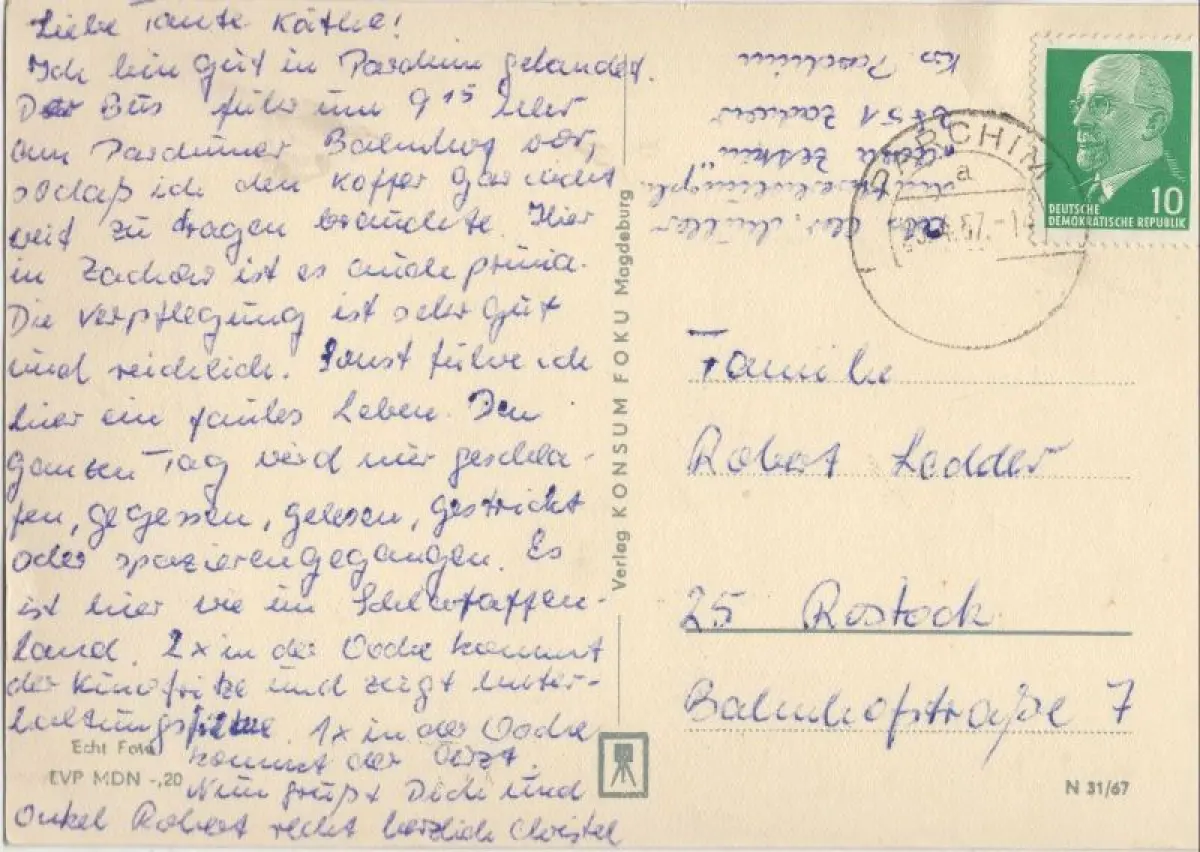 Liebe Tante Käthe!
Ich bin gut in Parchim gelandet.
Der Bus fuhr um 9 15 Uhr
am Parchimer Bahnhof vor,
sodaß ich den Koffer gar nicht
weit zu tragen brauchte. Hier
in Zachow ist es auch prima.
Die Verpflegung ist sehr gut
und reichlich. Sonst führe ich
hier ein faules Leben. Den
ganzen Tag wird nur geschla-
fen, gegessen, gelesen, gestrickt
oder spazierengegangen. Es
ist hier wie im Schlaraffen-
land. 2x in der Woche kommt
der Kinofritze und zeigt Unter-
haltungsfilme. 1x in der Woche
kommt der Arzt.
Nun grüßt Dich und
Onkel Robert recht herzlich Christel
Echt Foto
EVP MDN -,20
Verlag KONSUM FOKU Magdeburg
"Clara Zetkin"
2851 Zachow
Krs. Parchim
PARCHIM
a
67.-1
10
DEUTSCHE
DEMOKRATISCHE REPUBLIK
Familie
Robert Ledder
25 Rostock
Bahnhofstraße 7
N 31/67